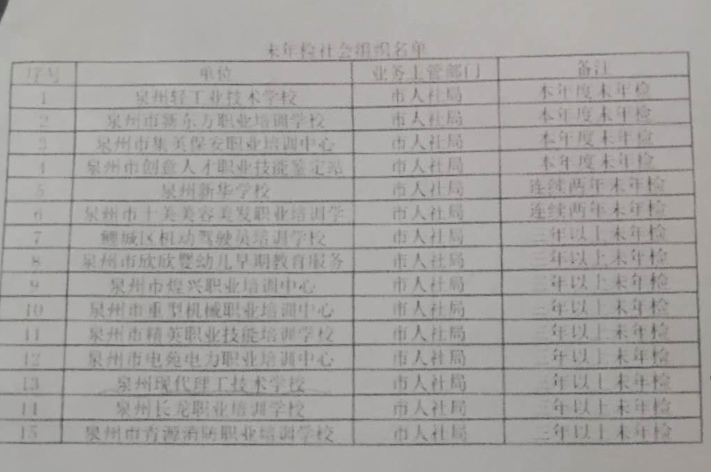 未年检社会组织名单
序号 单位 业务主管部门 备注
1 泉州轻工业技术学校 市人社局 本年度未年检
2 泉州市新东方职业培训学校 市人社局 本年度未年检
3 泉州市集美保安职业培训中心 市人社局 本年度未年检
4 泉州市创意人才职业技能鉴定站 市人社局 本年度未年检
5 泉州新华学校 市人社局 连续两年未年检
6 泉州市十美美容美发职业培训学 市人社局 连续两年未年检
7 鲤城区机动驾驶员培训学校 市人社局 三年以上未年检
8 泉州市欣欣婴幼儿早期教育服务 市人社局 三年以上未年检
9 泉州市煌兴职业培训中心 市人社局 三年以上未年检
10 泉州市重型机械职业培训中心 市人社局 三年以上未年检
11 泉州市精英职业技能培训学校 市人社局 三年以上未年检
12 泉州市电苑电力职业培训中心 市人社局 三年以上未年检
13 泉州现代理工技术学校 市人社局 三年以上未年检
14 泉州长龙职业培训学校 市人社局 三年以上未年检
15 泉州市青源消防职业培训学校 市人社局 三年以上未年检